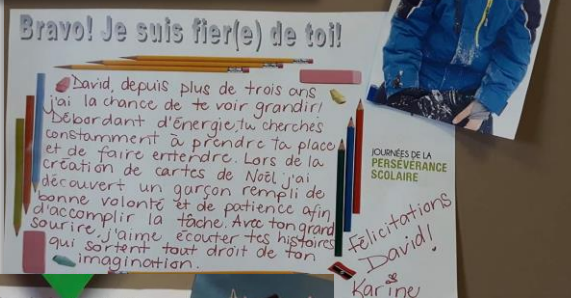 Bravo! Je suis fier(e) de toi!
David, depuis plus de trois ans
j'ai la chance de te voir grandir!
Débordant d'énergie, tu cherches
constamment à prendre ta place
et de faire entendre. Lors de la
création de cartes de Noël j'ai
découvert un garçon rempli de
bonne volonté et de patience afin
d'accomplir la tâche. Avec ton grand
sourire, j'aime écouter tes histoires
qui sortent tout droit de ton
imagination.
JOURNÉES DE LA
PERSÉVÉRANCE
SCOLAIRE
Félicitations
David!
Karine